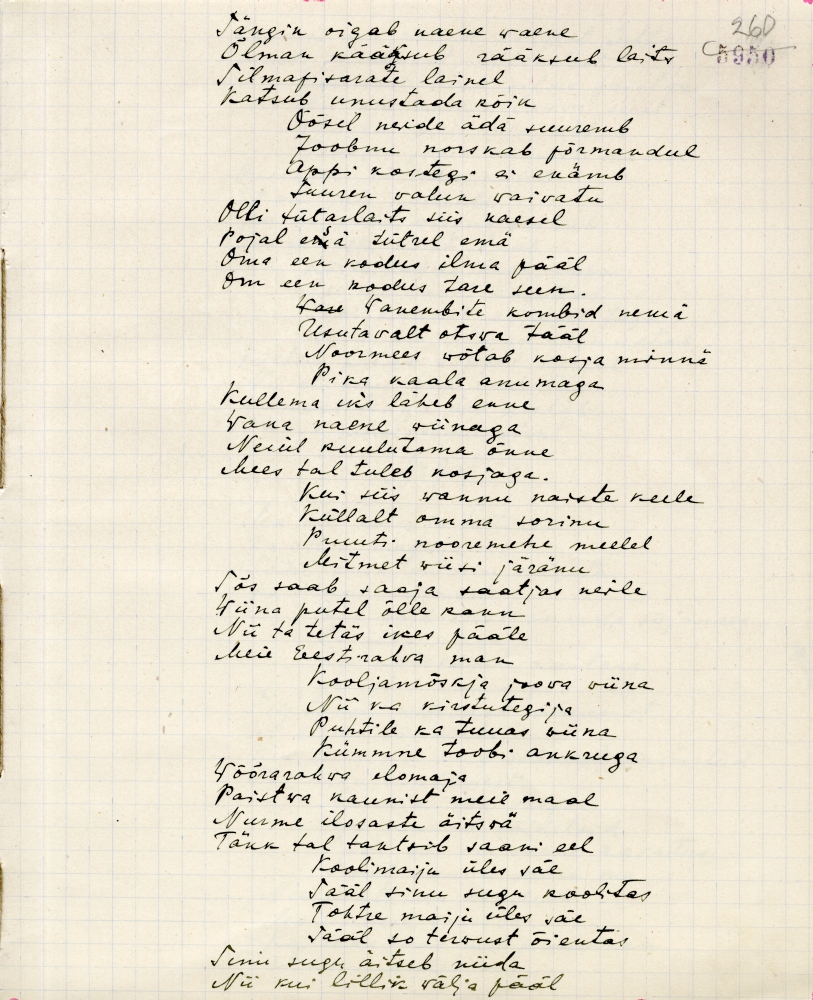 260
5950
Sängin oigab naene waene
Õlman kääksub rääksub laits
Silmapisarate lainel
Katsub unustada kõik
Öösel neide ädä suuremb
Joobnu norskab põrmandul
Appi kostegi ei enämb
Suuren valun waivatu
Olli tütarlaits siis naesel
Pojal esä tütrel emä
Oma een kodus ilma pääl
Om een kodus tare seen.
Wanembite kombid nemä
Usutavalt otswa tääl
Noormees wõtab kosja minnä
Pika kaala anumaga
Kullema iks läheb enne
Wana naene wiinaga
Neiul kuulutama õnne
Mees tal tuleb kosjaga.
Kui siis wannu naiste keele
Küllalt omma sorinu
Puuti nooremehe meelel
Mitmet wiisi järänu
Sõs saab saaja saatjas neile
Wiina putel õlle kann
Nii ta tetäs ikes pääle
Meie Eesti rahva man
Kooljamõskja joowa wiina
Nii ka kirstutegija
Puhtile ka tuuas wiina
Kümmne toobi ankruga
Wõõrarahwa elomaja
Paistwa kaunist meie maal
Nurme ilosaste äitswä
Tänk tal tantsib saani eel
Koolimaiju üles säe
Sääl sinu sugu koolitas
Tohtre maiju üles säe
Sääl so terwust õientas
Sinu sugu äitseb niida
Nii kui lillik wälja pääl